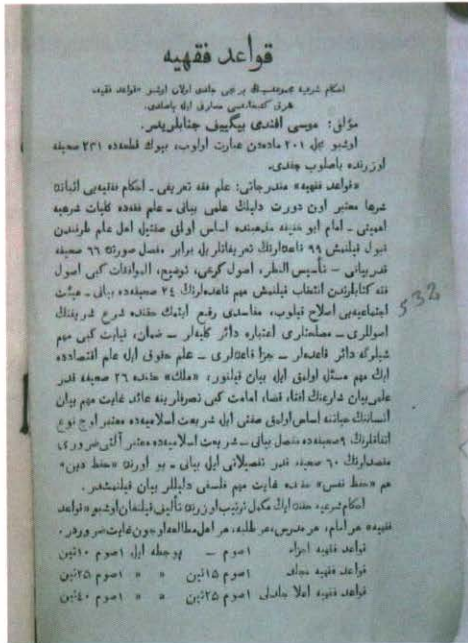 قواعد فقهيه
احكام شرعيه مجموعه‌سينڭ برنچى جلدى اولان اوشبو «قواعد فقيه»
شرق كتبخانه‌سى مصارفى ايله باصلدى.
مؤلفى: موسى افندى بيگييف جنابلريدر.
اوشبو مجله ٢٠١ ماده‌دن عبارت اولوب، بيوك قطعه‌ده ٢٣١ صحيفه
اوزرنده باصلوب چقدى.
«قواعد فقهيه» مندرجاتى: علم فقه تعريفى ـ احكام فقهيه‌نى اثباتده
شرعا معتبر اون دورت دليلنڭ علمى بيانى ـ علم فقهده كليات شرعيه
اهميتى ـ امام ابو حنيفه مذهبنده اساس اولمق صفتيله اهل علم طرفندن
قبول قيلنمش ٩٩ قاعده‌لرنڭ تعريفاتلريله برابر مفصل صورتده ٦٦ صحيفه
قدر بيانى ـ تأسيس النظر، اصول كرخى، توضيح، الموافقات كبى اصول
فقه كتابلرندن انتخاب قيلنمش مهم قاعده‌لرنڭ ٢٤ صحيفه‌ده بيانى ـ هيئت
اجتماعيه‌نى اصلاح قيلوب، مفاسدى رفع ايتمك حقنده شرع شريفنڭ
اصوللرى ـ مصلحتلرى اعتباره دائر كليه‌لر ـ ضمان، نيابت كبى مهم
شيلرگه دائر قاعده‌لر ـ جزا قاعده‌لرى ـ علم حقوق ايله علم اقتصادده
ايڭ مهم مسئله اولمق ايله بيان قيلنور، «ملك» حقنده ٢٦ صحيفه قدر
علمى بيان شارعنڭ افتا، قضا، امامت كبى تصرفلرينه عائد غايت مهم بيان
انساننڭ حياتنه اساس اولمق صفتى ايله شريعت اسلاميه‌ده معتبر اوچ نوع
اتفاقلرنڭ ٩ صحيفه‌ده مفصل بيانى ـ شريعت اسلاميه‌ده معتبر آلتى ضرورى
مقصدلرنڭ ٦٠ صحيفه قدر تفصيلاتى ايله بيانى ـ بو اورنده «حفظ دين»
هم «حفظ نفس» حقنده غايت مهم فلسفى دليللر بيان قيلنمشدر.
احكام شرعيه حقنده ايڭ مكمل ترتيب اوزرنده تأليف قيلنغان اوشبو «قواعد
فقهيه» هر امام، هر مدرس، هر طلبه، هر اهل مطالعه اوچون غايت ضروردر.
قواعد فقهيه اجزاء ١ صوم ــ پوچطه ايله ١ صوم ١٠ تين
قواعد فقهيه مجلد ١ صوم ١٥ تين » » ١ صوم ٢٥ تين
قواعد فقهيه اعلا جلدلى ١ صوم ٢٥ تين » » ١ صوم ٤٠ تين
532